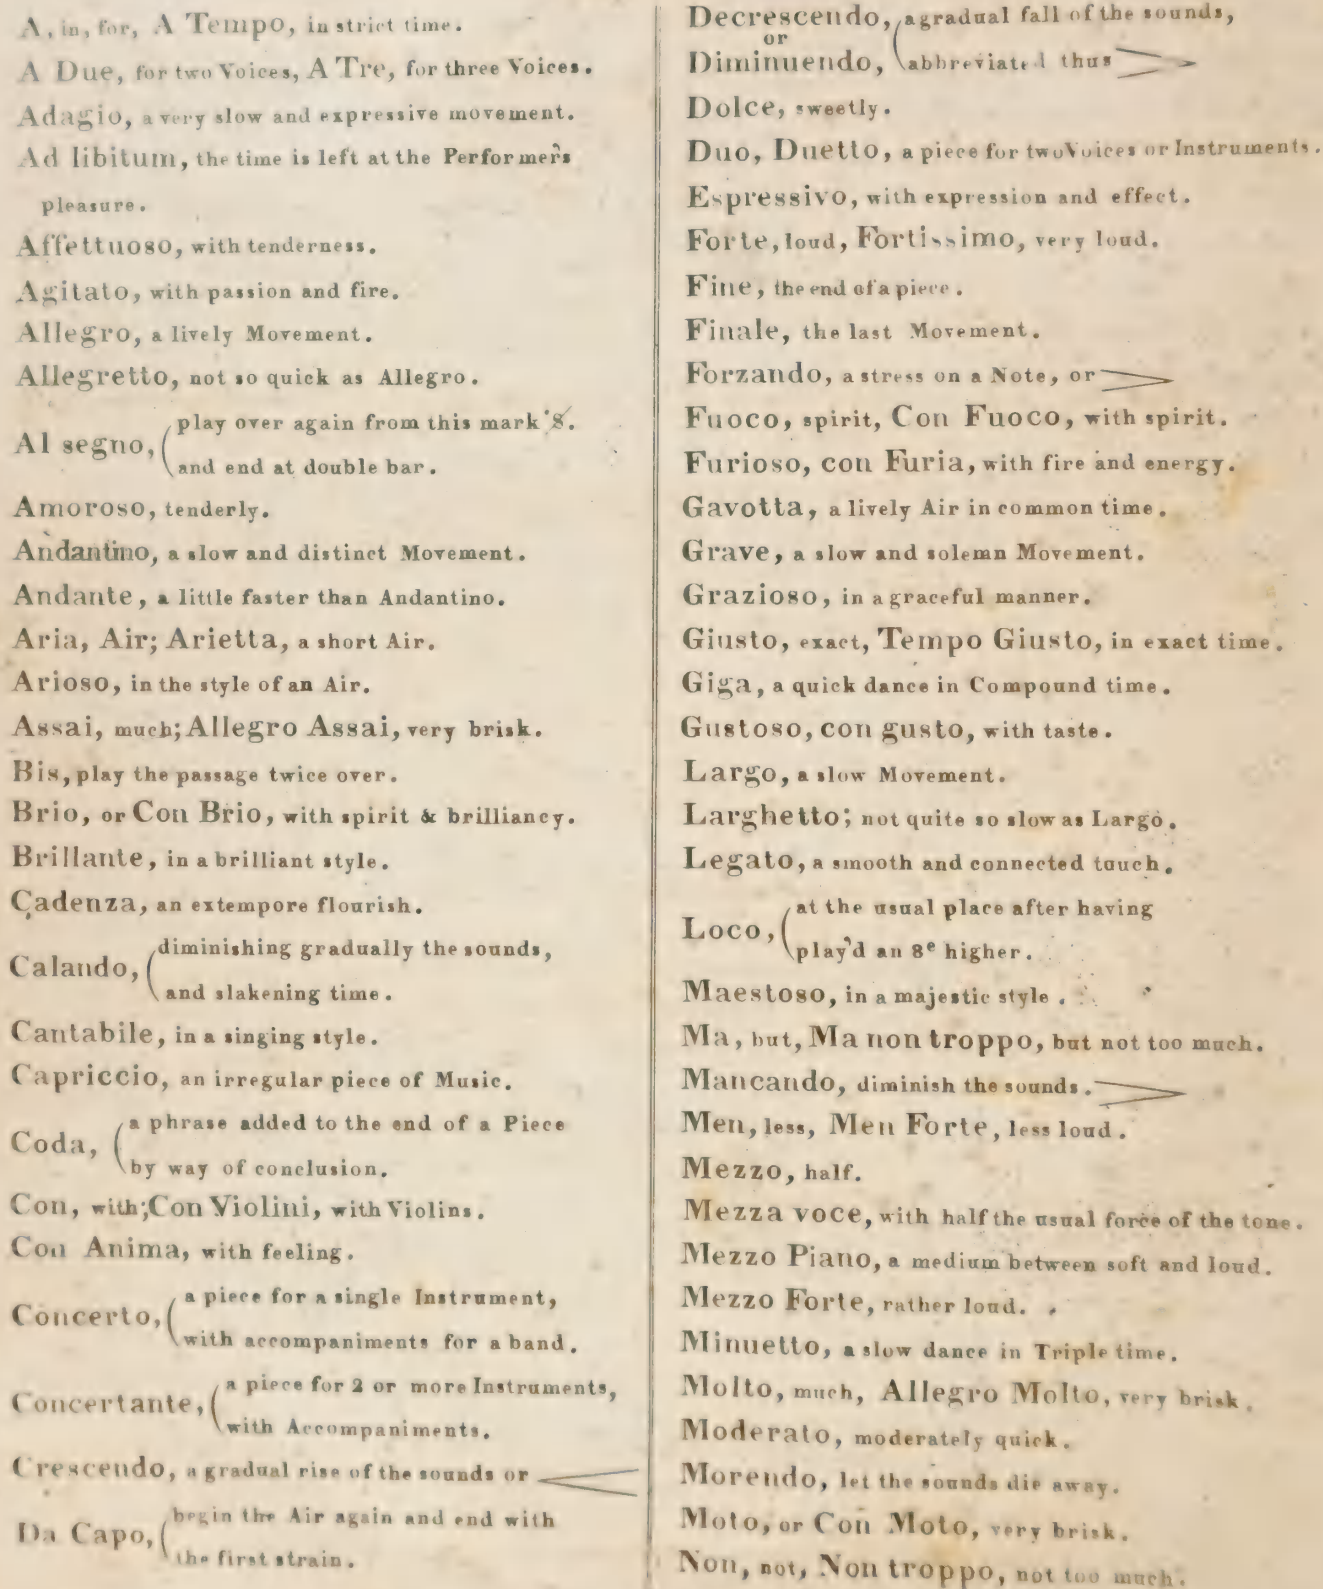 A, in, for, A Tempo, in strict time.
A Due, for two Voices, A Tre, for three Voices.
Adagio, a very slow and expressive movement.
Ad libitum, the time is left at the Performers
pleasure.
Affettuoso, with tenderness.
Agitato, with passion and fire.
Allegro, a lively Movement.
Allegretto, not so quick as Allegro.
Al segno, play over again from this mark 𝄋.
and end at double bar.
Amoroso, tenderly.
Andantino, a slow and distinct Movement.
Andante, a little faster than Andantino.
Aria, Air; Arietta, a short Air.
Arioso, in the style of an Air.
Assai, much; Allegro Assai, very brisk.
Bis, play the passage twice over.
Brio, or Con Brio, with spirit & brilliancy.
Brillante, in a brilliant style.
Cadenza, an extempore flourish.
Calando, diminishing gradually the sounds,
and slakening time.
Cantabile, in a singing style.
Capriccio, an irregular piece of Music.
Coda, a phrase added to the end of a Piece
by way of conclusion.
Con, with; Con Violini, with Violins.
Con Anima, with feeling.
Concerto, a piece for a single Instrument,
with accompaniments for a band.
Concertante, a piece for 2 or more Instruments,
with Accompaniments.
Crescendo, a gradual rise of the sounds or
Da Capo, begin the Air again and end with
the first strain.
Decrescendo, a gradual fall of the sounds,
or
Diminuendo, abbreviated thus
Dolce, sweetly.
Duo, Duetto, a piece for two Voices or Instruments.
Espressivo, with expression and effect.
Forte, loud, Fortissimo, very loud.
Fine, the end of a piece.
Finale, the last Movement.
Forzando, a stress on a Note, or
Fuoco, spirit, Con Fuoco, with spirit.
Furioso, con Furia, with fire and energy.
Gavotta, a lively Air in common time.
Grave, a slow and solemn Movement.
Grazioso, in a graceful manner.
Giusto, exact, Tempo Giusto, in exact time.
Giga, a quick dance in Compound time.
Gustoso, con gusto, with taste.
Largo, a slow Movement.
Larghetto; not quite so slow as Largo.
Legato, a smooth and connected touch.
Loco, at the usual place after having
play'd an 8e higher.
Maestoso, in a majestic style.
Ma, but, Ma non troppo, but not too much.
Mancando, diminish the sounds.
Men, less, Men Forte, less loud.
Mezzo, half.
Mezza voce, with half the usual force of the tone.
Mezzo Piano, a medium between soft and loud.
Mezzo Forte, rather loud.
Minuetto, a slow dance in Triple time.
Molto, much, Allegro Molto, very brisk.
Moderato, moderately quick.
Morendo, let the sounds die away.
Moto, or Con Moto, very brisk.
Non, not, Non troppo, not too much.